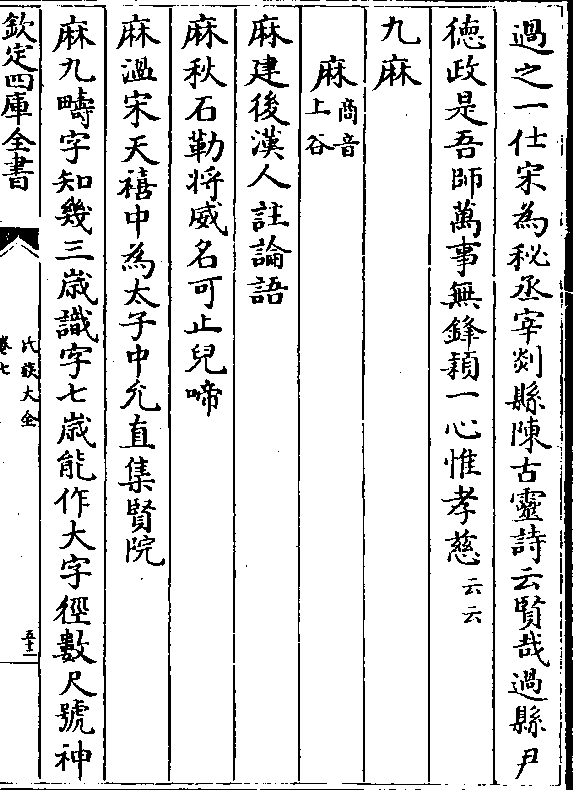 過之一仕宋為秘丞宰剡縣陳古靈詩云賢哉過縣尹
徳政是吾師萬事無鋒穎一心惟孝慈云云
九麻
麻商音上谷
麻建後漢人註論語
麻秋石勒將威名可止兒啼
麻溫宋天禧中為太子中允直集賢院
麻九疇字知幾三嵗識字七嵗能作大字徑數尺號神
欽定四庫全書
氏族大全
卷七
五十二